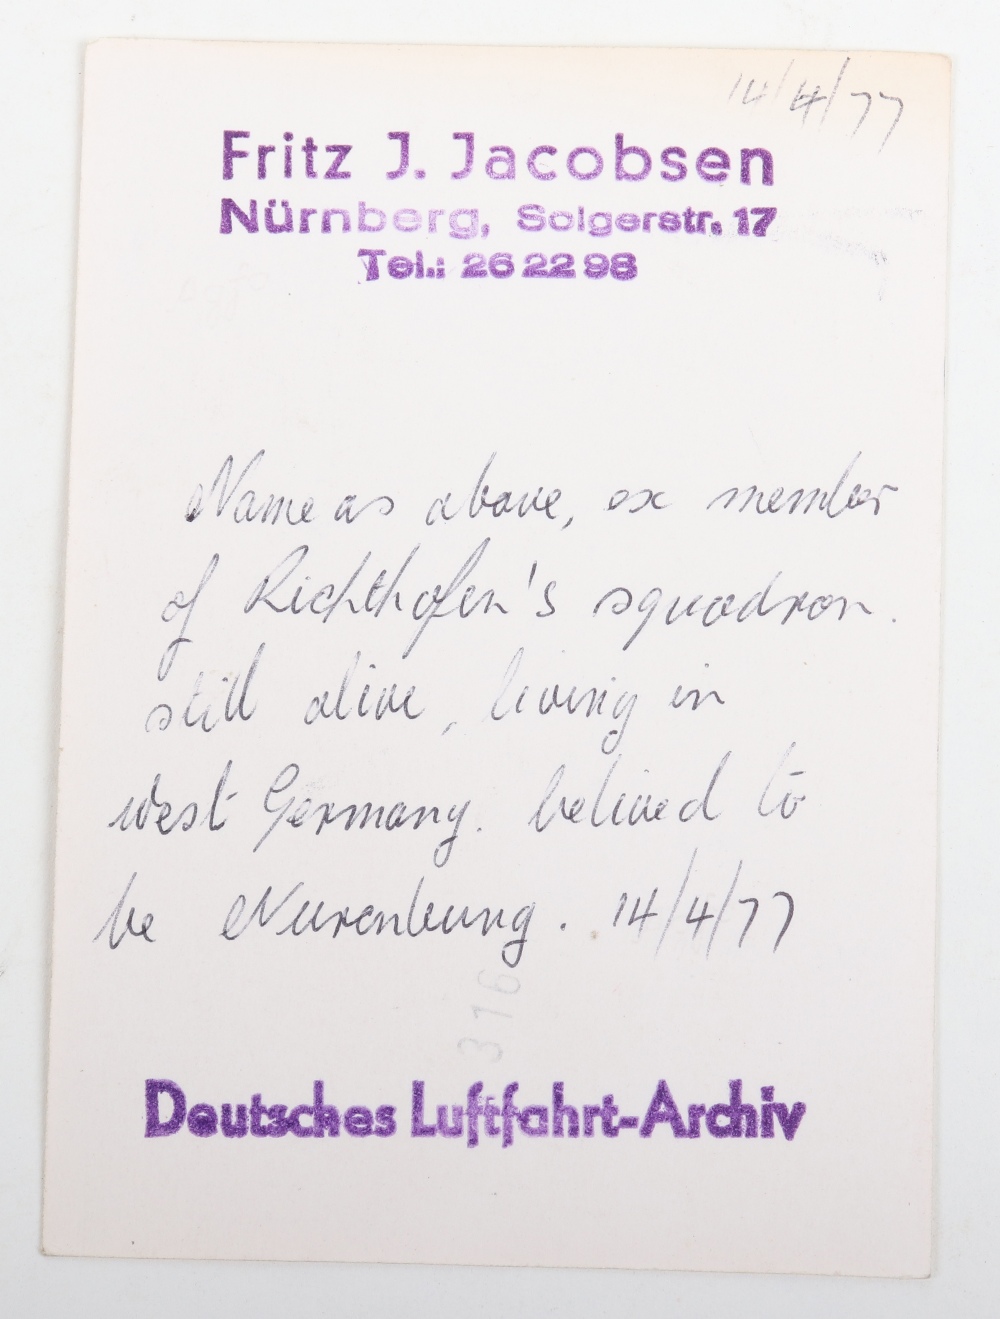 14/4/77
Fritz J. Jacobsen
Nürnberg, Solgerstr. 17
Tel.: 26 22 98
Name as above, ex member
of Richthofen's squadron.
still alive, living in
west Germany. believed to
be Nurenburg. 14/4/77
316
Deutsches Luftfahrt-Archiv